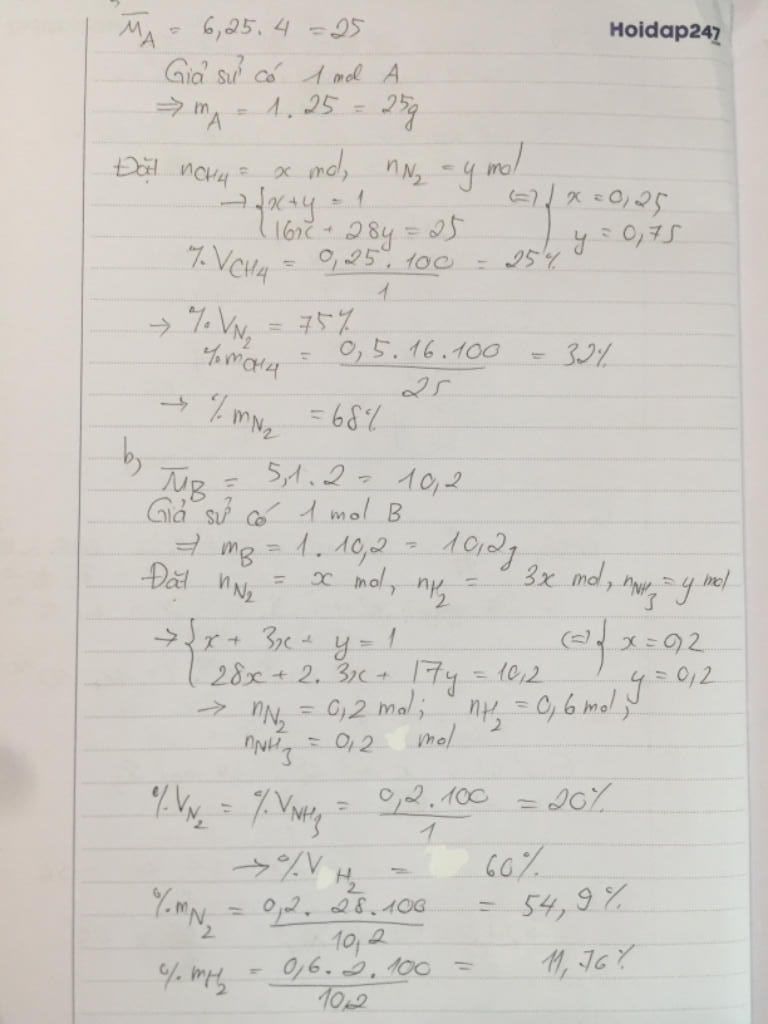 Hoidap247
M̅_A = 6,25.4 = 25
Giả sử có 1 mol A
=> m_A = 1.25 = 25g
Đặt n_CH4 = x mol, n_N2 = y mol
→ { x+y = 1 (=) { x = 0,25
16x + 28y = 25 y = 0,75
%V_CH4 = 0,25.100/1 = 25%
→ %V_N2 = 75%
%m_CH4 = 0,5.16.100/25 = 32%
→ %m_N2 = 68%
b,
M̅_B = 5,1.2 = 10,2
Giả sử có 1 mol B
=> m_B = 1.10,2 = 10,2g
Đặt n_N2 = x mol, n_H2 = 3x mol, n_NH3 = y mol
→ { x + 3x + y = 1 (=) { x = 0,2
28x + 2.3x + 17y = 10,2 y = 0,2
→ n_N2 = 0,2 mol; n_H2 = 0,6 mol;
n_NH3 = 0,2 mol
%V_N2 = %V_NH3 = 0,2.100/1 = 20%
→ %V_H2 = 60%
%m_N2 = 0,2.28.100/10,2 = 54,9%
%m_H2 = 0,6.2.100/10,2 = 11,76%